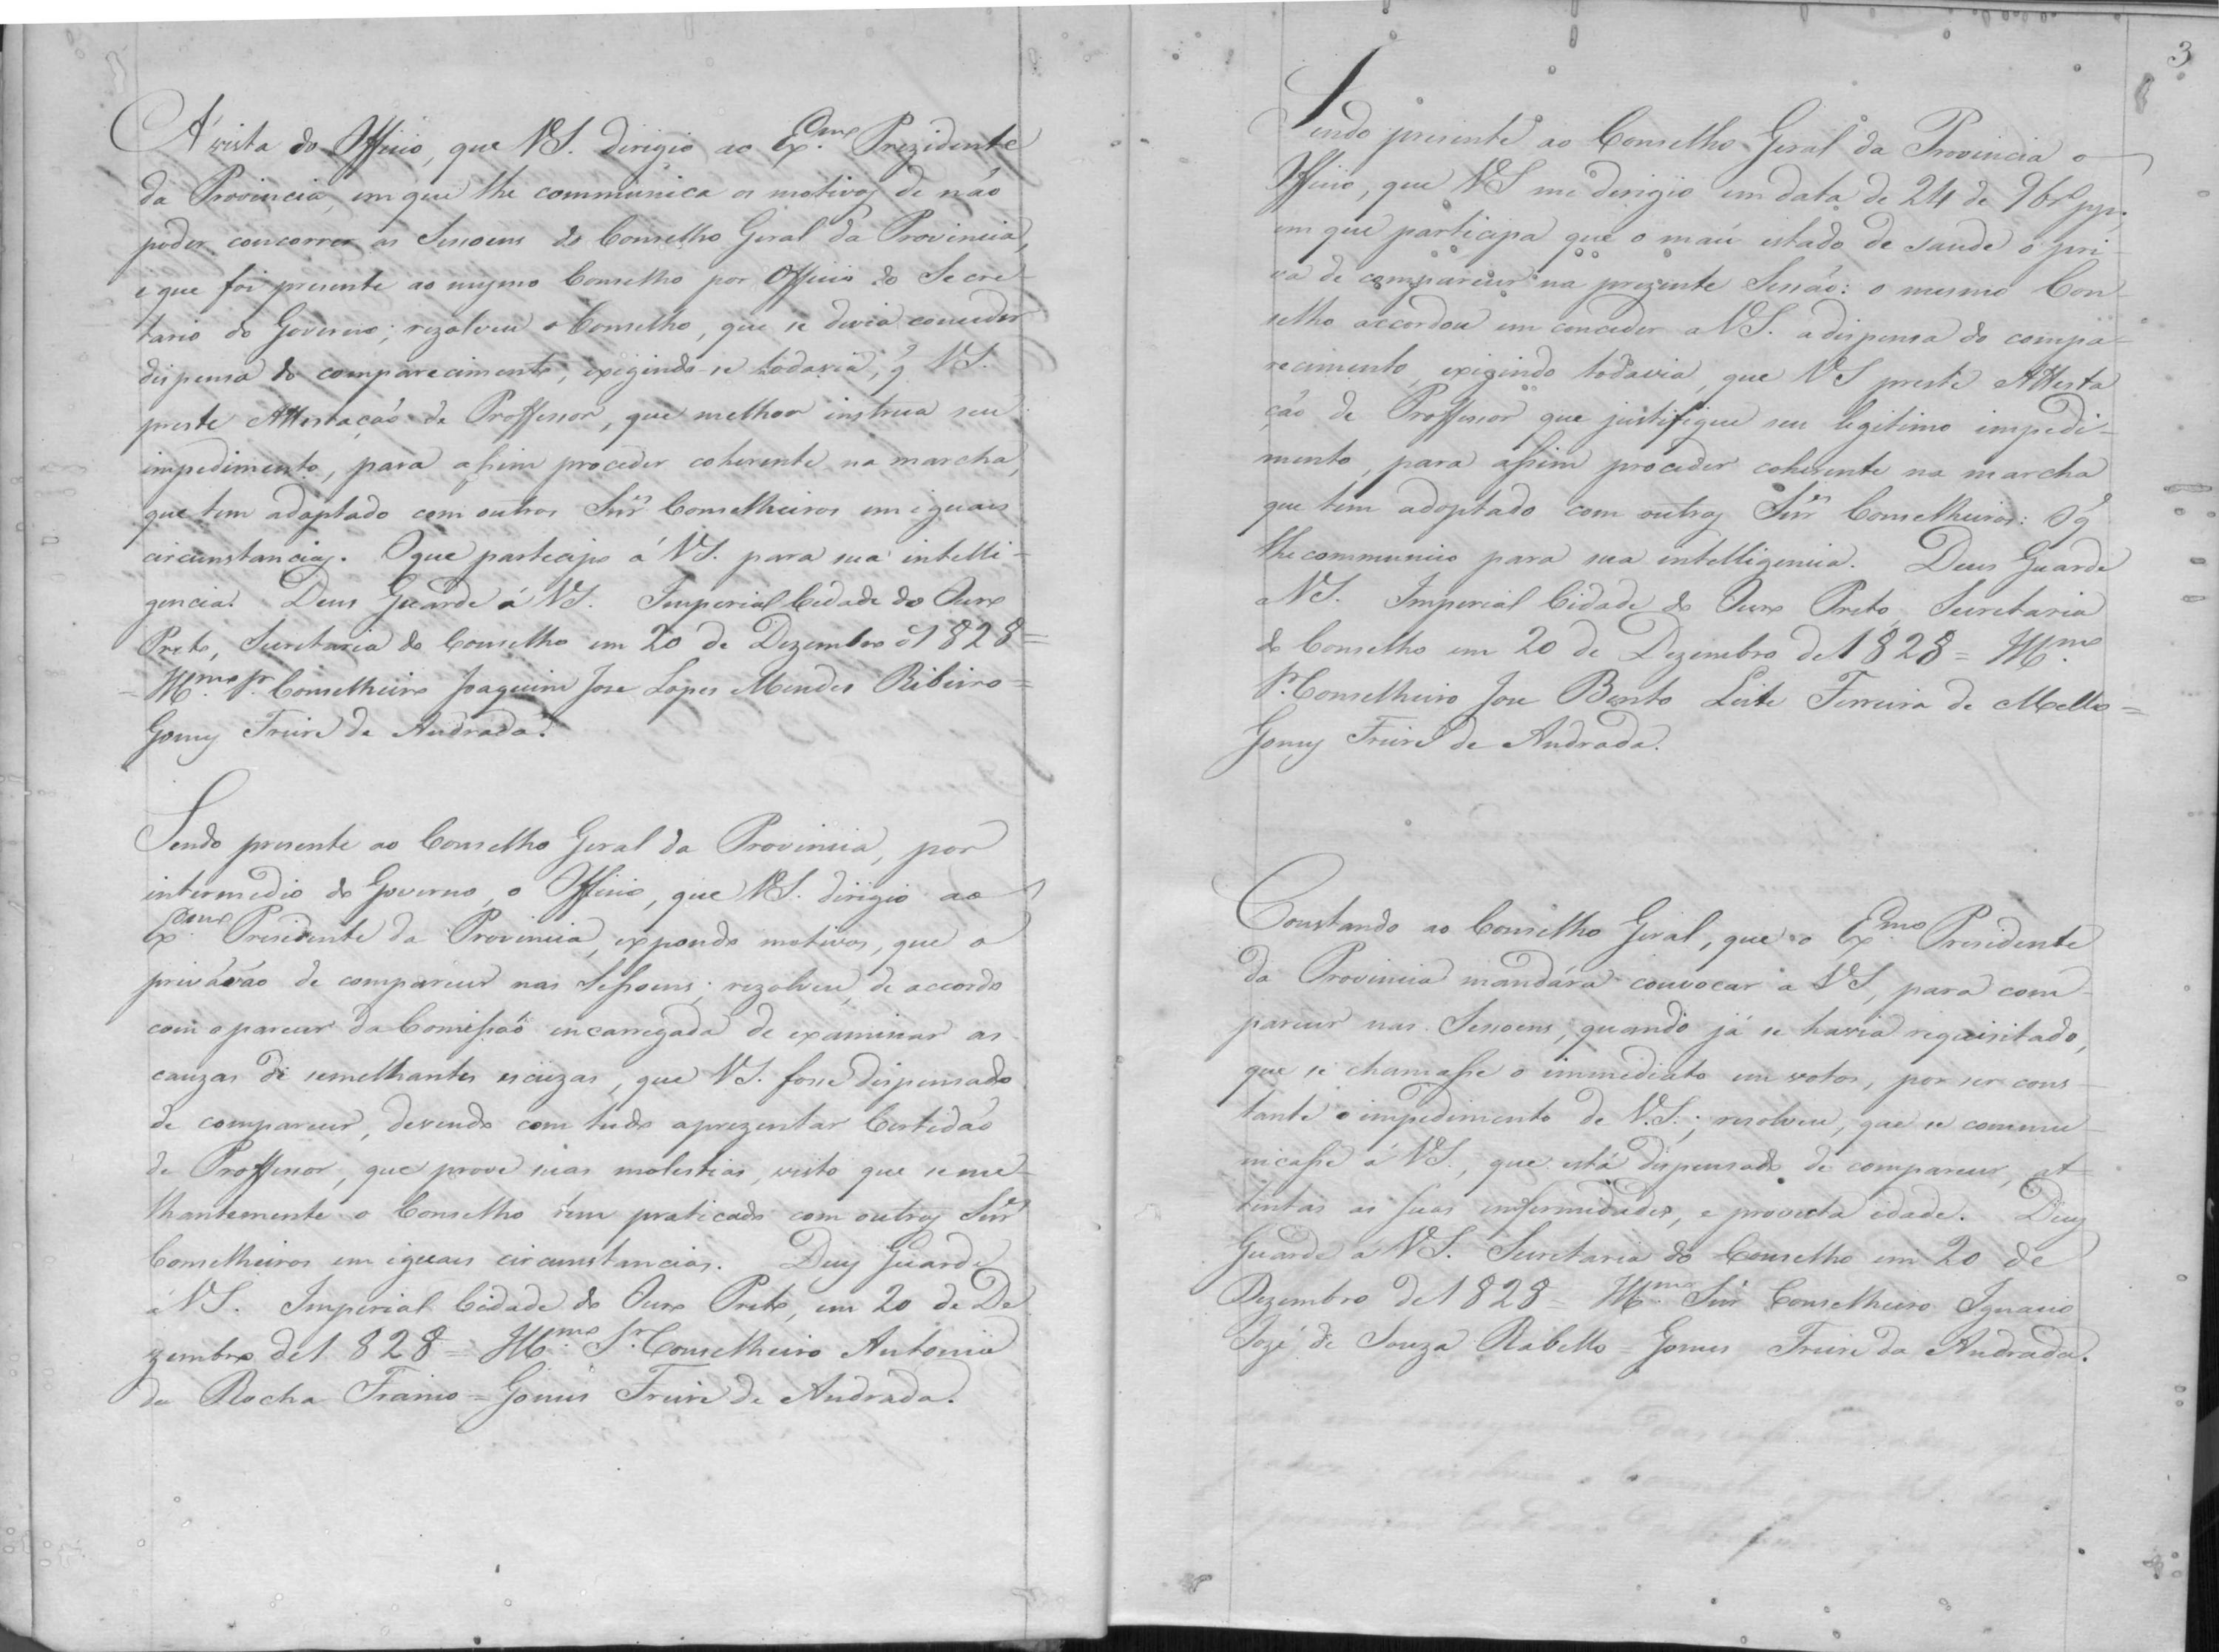 A' vista do Officio, que V.S. dirigio ao Ex.mo Prezidente
da Provincia, em que lhe communica os motivos de não
poder concorrer as Sessoens do Conselho Geral da Provincia,
e que foi presente ao mesmo Conselho por Officio do Secre-
tario do Governo; rezolveu o Conselho, que se devia conceder
dispensa do comparecimento, exigindo-se todavia, q̃ V.S.
preste Attestação de Proffessor, que melhor instrua seu
impedimento, para assim proceder coherente na marcha,
que tem adaptado com outros Snr.es Conselheiros em iguais
circunstancias. O que participo á V.S. para sua intelli-
gencia. Deus Guarde á V.S. Imperial Cidade do Ouro
Preto, Secretaria do Conselho em 20 de Dezembro d'1828=
=Ill.mo Sr. Conselheiro Joaquim Jose Lopes Mendes Ribeiro=
Gomes Freire de Andrada.
Sendo presente ao Conselho Geral da Provincia, por
intermedio do Governo, o Officio, que V.S. dirigio ao
Ex.mo Presidente da Provincia, expondo motivos, que o
privávão de comparecer nas Sessoens; rezolveu, de accordo
com o parecer da Comissão encarregada de examinar as
cauzas de semelhantes escuzas, que V.S. fosse dispensado
de comparecer, devendo com tudo aprezentar Certidão
de Proffessor, que prove suas molestias, visto que seme-
lhantemente o Conselho tem praticado com outros Snr.es
Conselheiros em iguais circunstancias. Deus Guarde
á V.S. Imperial Cidade do Ouro Preto, em 20 de De-
zembro de 1828= Ill.mo Sr. Conselheiro Antonio
da Rocha Franco= Gomes Freire de Andrada.
3
Sendo presente ao Conselho Geral da Provincia o
Officio, que V.S. me derigio em data de 24 de 9br.o pp.,
em que participa que o máu estado de saude o pri-
va de comparecer na prezente Sessão: o mesmo Con-
selho accordou em conceder a V.S. a dispensa do compa-
recimento, exigindo todavia, que V.S preste Attesta
ção de Proffessor que justifique seu legitimo impedi-
mento, para assim proceder coherente na marcha
que tem adoptado com outros Snr.es Conselheiros: O q̃
lhe communico para sua intelligencia. Deus Guarde
a V.S. Imperial Cidade do Ouro Preto, Secretaria
do Conselho em 20 de Dezembro de 1828= Ill.mo
Sr. Conselheiro Jose Bento Leite Ferreira de Mello=
Gomes Freire de Andrada.
Constando ao Conselho Geral, que o Ex.mo Presidente
da Provincia mandára convocar a V.S, para com-
parecer nas Sessoens, quando já se havia requisitado,
que se chamasse o immediato em votos, por ser cons-
tante o impedimento de V.S.; resolveu, que se commu-
nicasse á V.S., que está dispensado de comparecer, at-
tentas as suas enfermidades, e provecta idade. Deus
Guarde á V.S. Secretaria do Conselho em 20 de
Dezembro de 1828= Ill.mo Snr. Conselheiro Ignacio
Jozé de Souza Rabello= Gomes Freire da Andrada.